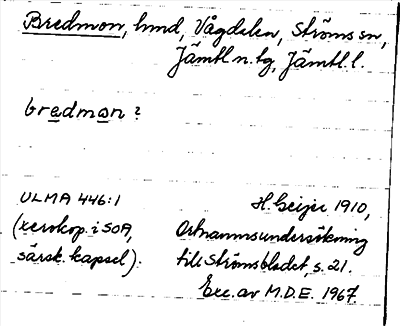 Bredmon, hmd, Vågdalen, Ströms sn,
Jämtl n. tg, Jämtl. l.
bredmon?
ULMA 446:1 H. Geijer 1910,
(xerokop. i SOA, Ortnamnsundersökning
särsk. kapsel). till Strömsbladet, s. 21.
Exc. av M.D.E. 1967.